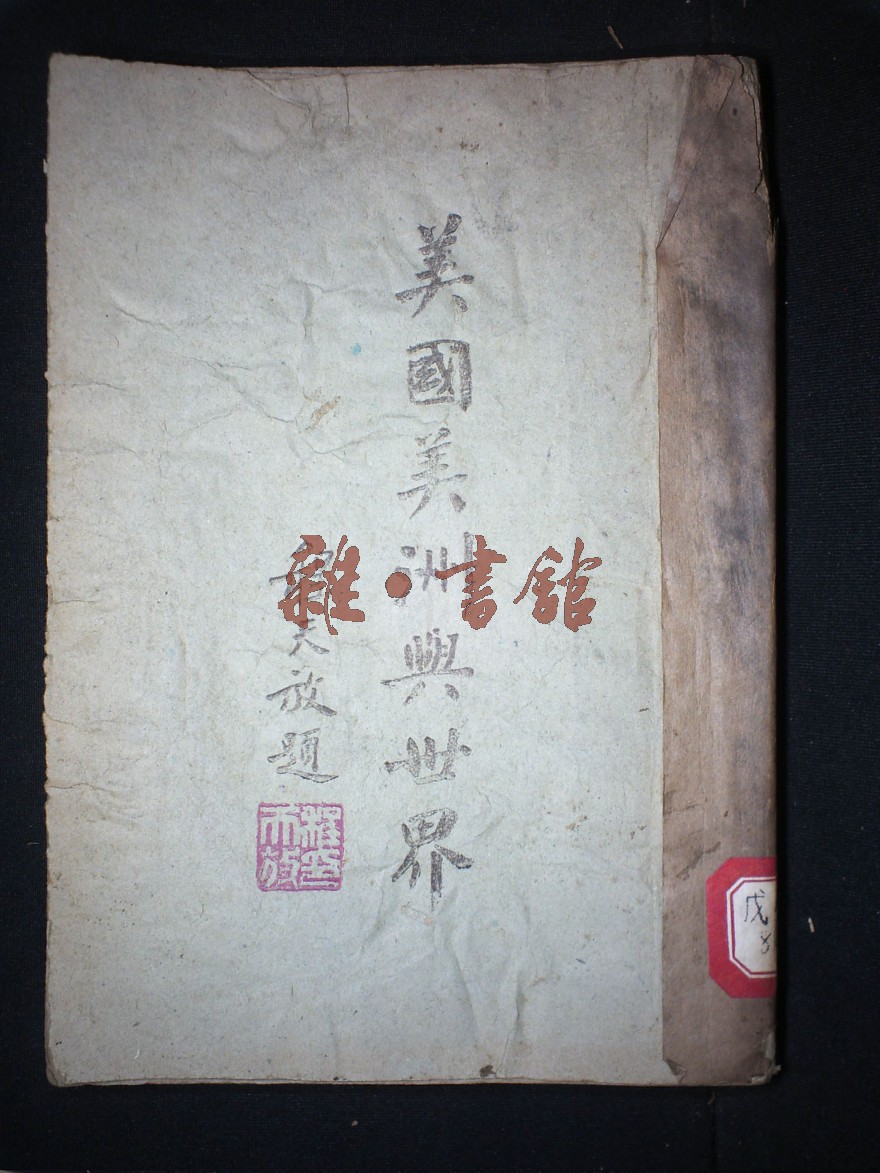 美國美洲與世界
天放題
天放
雜·書館
戊
8